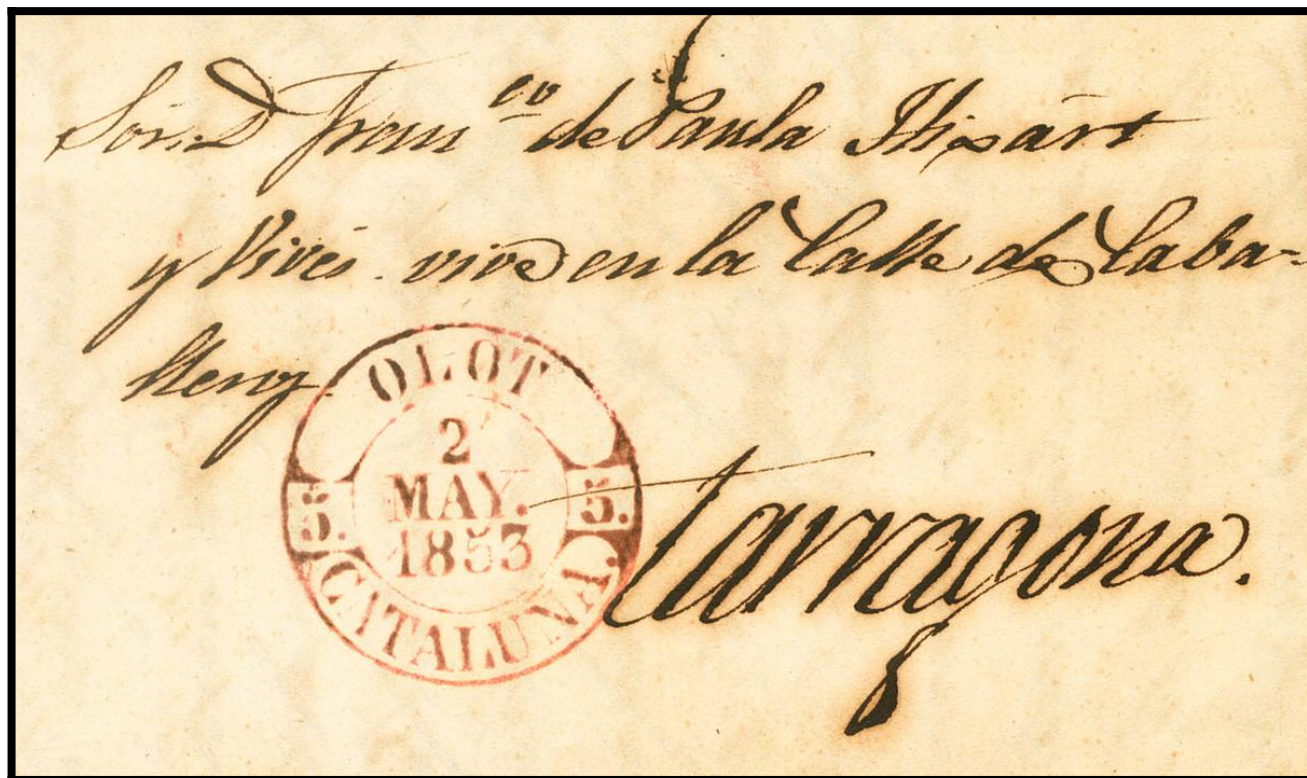 Sör. D. Franco de Paula Hixart
y Vives. vive en la Calle de Caba-
llery.
OLOT
2
MAY.
1853
5. 5.
CATALUÑA.
Tarragona.